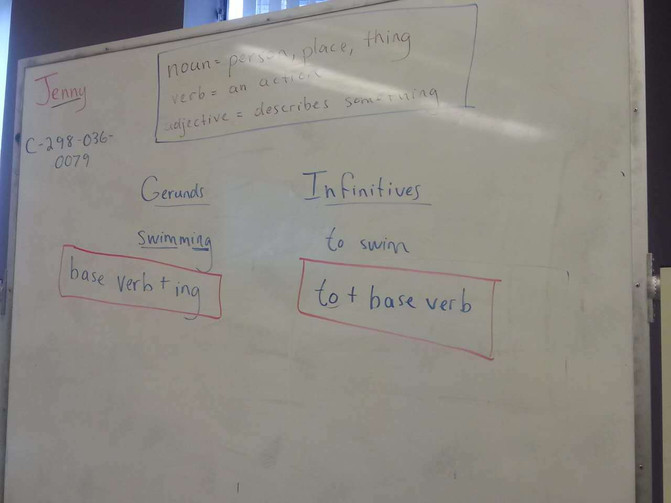 Jenny
C-298-036-
0079
noun = person, place, thing
verb = an action
adjective = describes something
Gerunds
swimming
base verb + ing
Infinitives
to swim
to + base verb